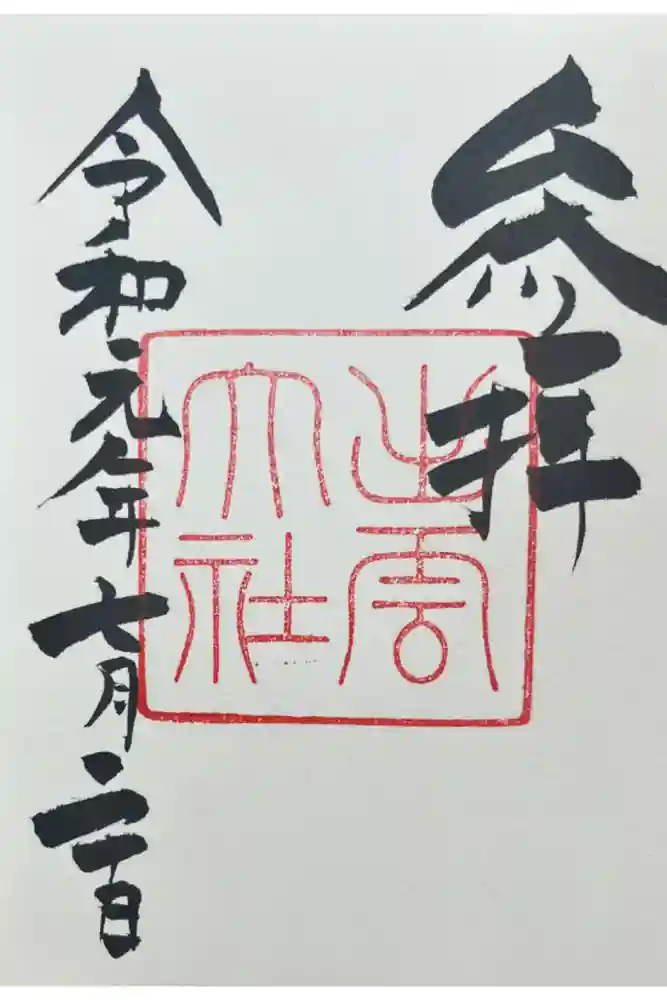 参拝
出雲
大社
令和元年七月三日